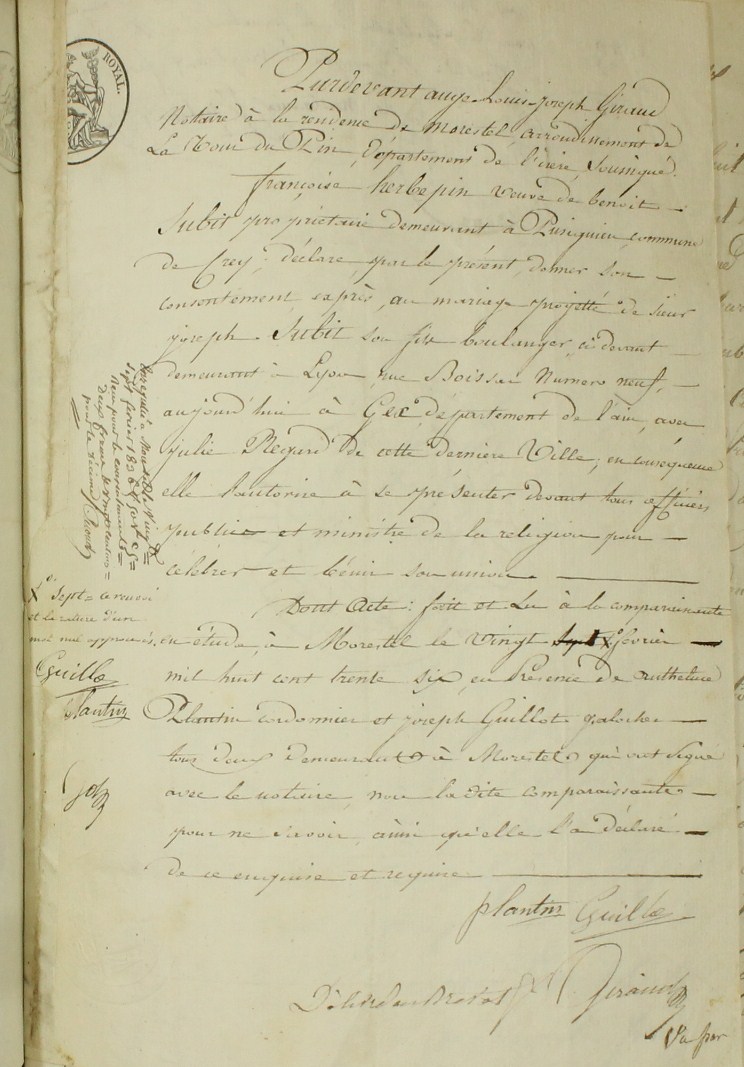 ROYAL.
Pardevant auge Louis joseph Giraud
Notaire à la residence de Morestel, arrondissement de
La Tour Du Pin, Département de l'isere, Soussigné.
françoise herbepin veuve de benoit
Jubit propriétaire demeurant à Pusignieu, commune
de Creys, déclare, par le présent, donner son
consentement, exprès, au mariage projetté de sieur
joseph Jubit son fils boulanger, ci devant
demeurant à Lyon, rue Boissac Numero neuf,
aujourd'hui à Gex, département de l'ain, avec
julie Regard de cette dernière Ville; en consequence
elle l'autorise à se présenter devant tous officiers
publics et ministre de la religion pour
célébrer et bénir son union.
Dont Acte: fait et Lu à la comparaissante
en étude, à Morestel le Vingt X février
mil huit cent trente six, en Présence de
Plantin cordonnier et joseph Guillot galocher
tous deux demeurant à Morestel qui ont signé
avec le notaire, non la dite comparaissante
pour ne savoir, ainsi qu'elle l'a déclaré
de ce enquise et requise
plantin Guillot
Giraud
Vu par
Enregistré à Morestel le Vingt
sept février 1836
Reçu pour le consentement
deux francs
X Sept = ce renvoi
et la rature d'un
mot nul approuvés.
Guillot
plantin